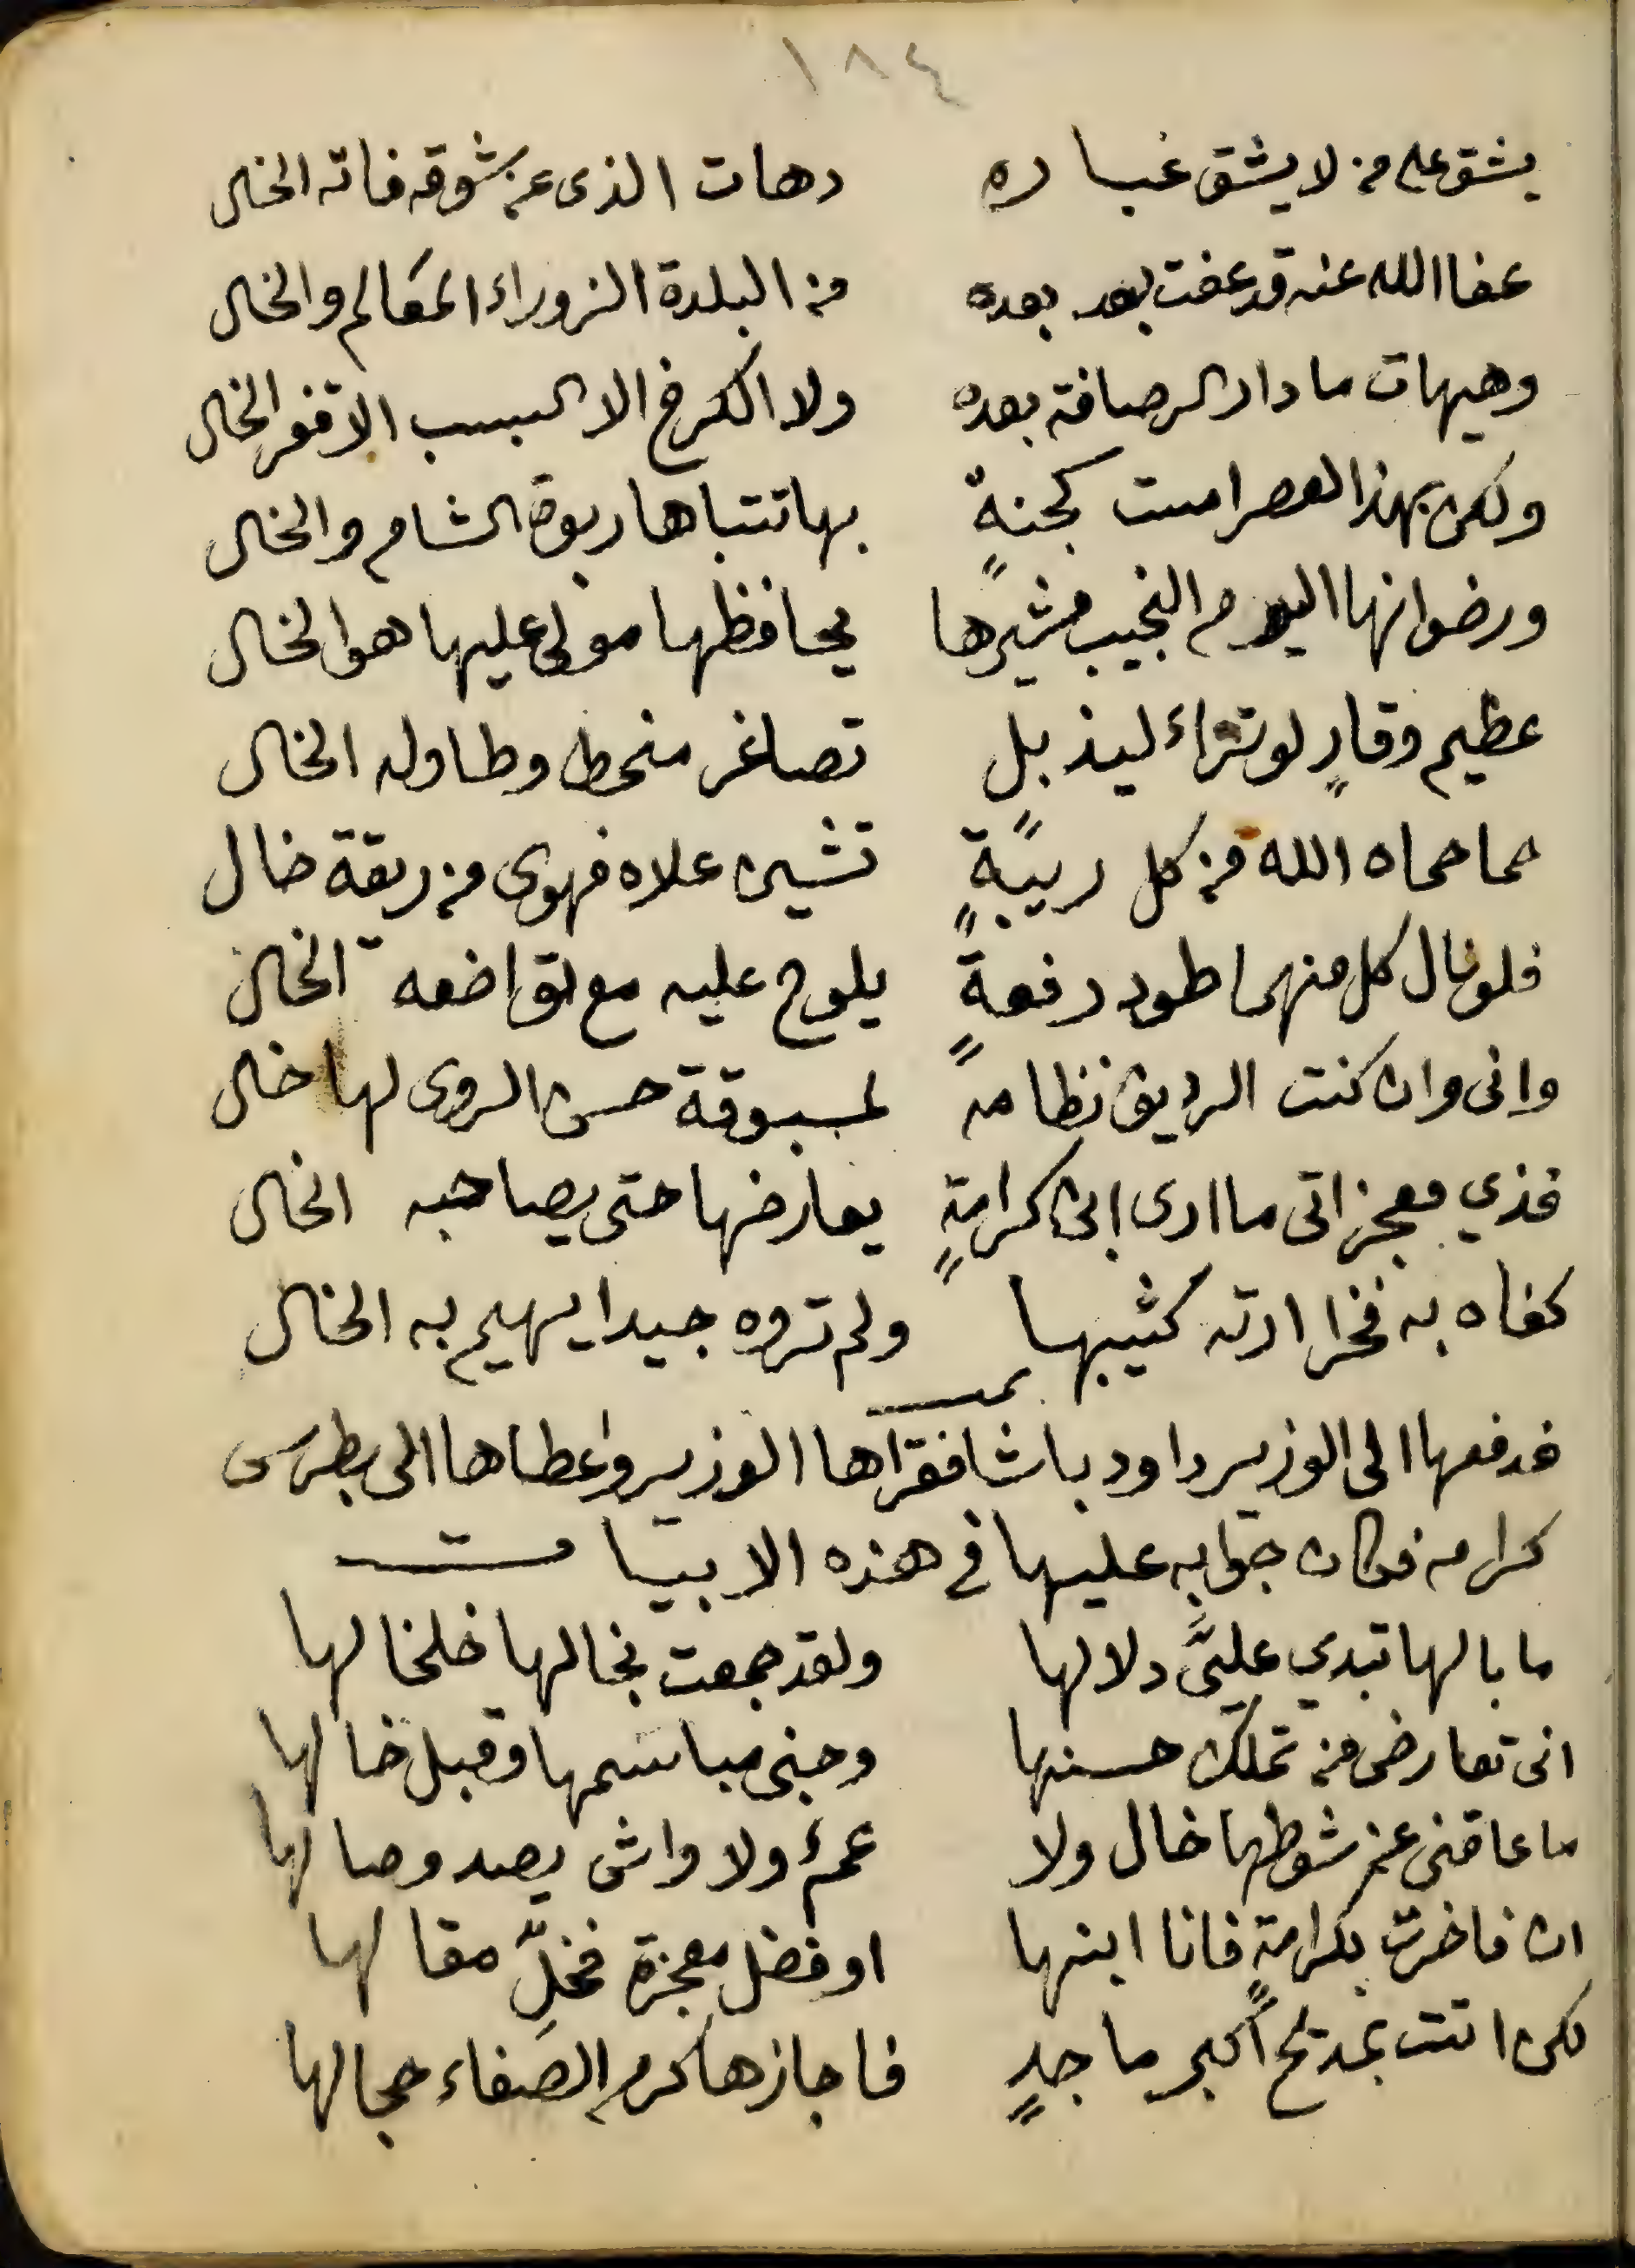 ١٨٤
يشق على من لا يشق غباره دهات الذي عن شوقه فاته الخال
عفا الله عنه قد عفت بعد بعده من البلدة الزوراء المعالم والخال
وهيهات ما دار الرصافة بعده ولا الكرخ الا السبسب الاقفر الخال
ولكن بهذا العصر امست كجنةٍ بها تتباها ربوة الشام والخال
ورضوانها اليوم النجيب مشيرها يحافظها مولى عليها هو الخال
عظيم وقارٍ لو تراء ليذبل تصاغر منحط وطاوله الخال
حما حماه الله من كل ريبةٍ تشين علاه فهوى من ريقة خال
فلو نال كل منهما طود رفعةٍ يلوح عليه مع تواضعه الخال
وانى وان كنت الرديف نظامه لمسبوقة حسن الروى لها خال
فذي معجزاتى ما ارى ابن كرامةٍ يعارضها حتى يصاحبه الخال
كفاه به فخرا ارته كثيبها ولم تروه جيدا يهيم به الخال
تمت
فدفعها الى الوزير داود باشا فقراها الوزير واعطاها الى بطرس
كرامه فكان جوابه عليها في هذه الابيات
ما بالها تبدي عليَّ دلالها ولقد جمعت بخالها خلخالها
انى تعارضى من تملك حسنها وجنى مباسمها وقبل خالها
ما عاقنى عن شوطها خال ولا عمٌ ولا واش يصد وصالها
ان فاخرت بكرامةٍ فانا ابنها او فضل معجزة فخلِّ مقالها
لكن اتت بمديح اكبر ماجدٍ فاجازها كرم الصفاء حجالها